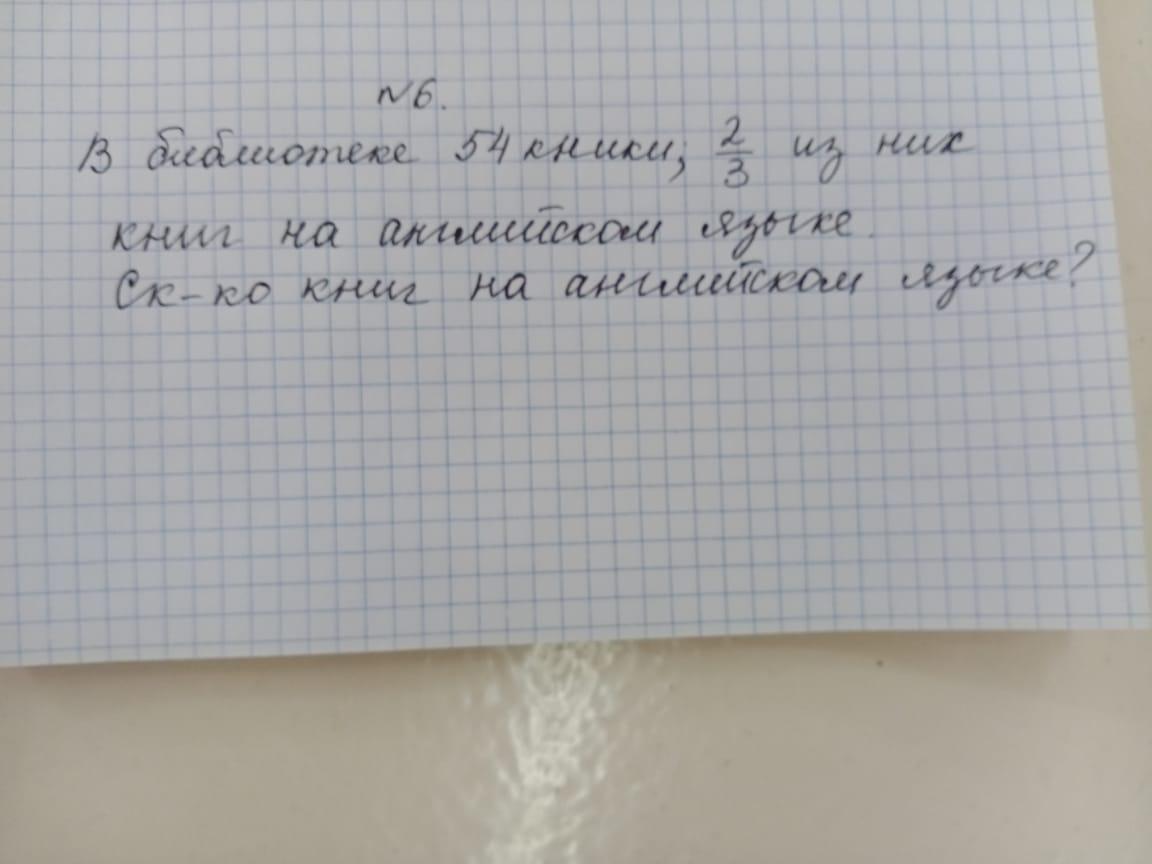 №6.
В библиотеке 54 кники, 2/3 из них
книг на английском языке.
Ск-ко книг на английском языке?